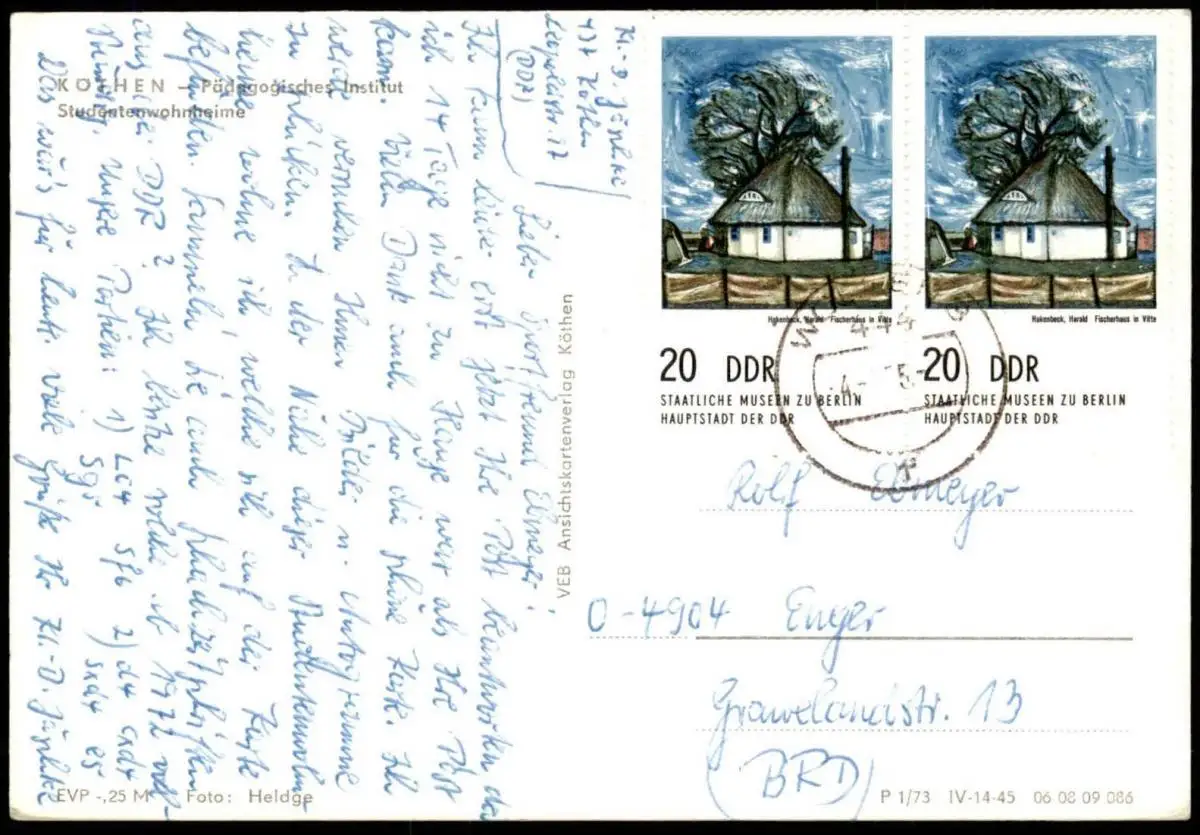 KÖTHEN – Pädagogisches Institut
Studentenwohnheime
Kl.-D. Jänicke
437 Köthen
Leopoldstr. 17
(DDR)
Lieber Sportfreund Ebmeyer!
Ihr kann leider erst jetzt Ihre Post beantworten da
ich 14 Tage nicht zu Hause war als Ihre Post
kam. Vielen Dank auch für die schöne Karte. Ich
werde versuchen Ihnen Bilder u. Autogramme
zu schicken. In der Nähe dieser Studentenwohn-
heime wohne ich welche sich auf der Karte
befinden. Sammeln Sie auch Schachzeitschriften
aus der DDR? Ich besitze welche ab 1972 voll-
ständig. Unsere Partien: 1) Lc4 Sf6 2) d4 cxd4
Sg5 Sxd4 e5
Das wär's für heute. Viele Grüße Ihr Kl.-D. Jänicke
VEB Ansichtskartenverlag Köthen
Hakenbeck, Harald Fischerhaus in Vitte
20 DDR
STAATLICHE MUSEEN ZU BERLIN
HAUPTSTADT DER DDR
Hakenbeck, Harald Fischerhaus in Vitte
20 DDR
STAATLICHE MUSEEN ZU BERLIN
HAUPTSTADT DER DDR
Rolf Ebmeyer
D-4904 Enger
Gravelandstr. 13
(BRD)
EVP -,25 M Foto: Heldge
P 1/73 IV-14-45 06 08 09 086